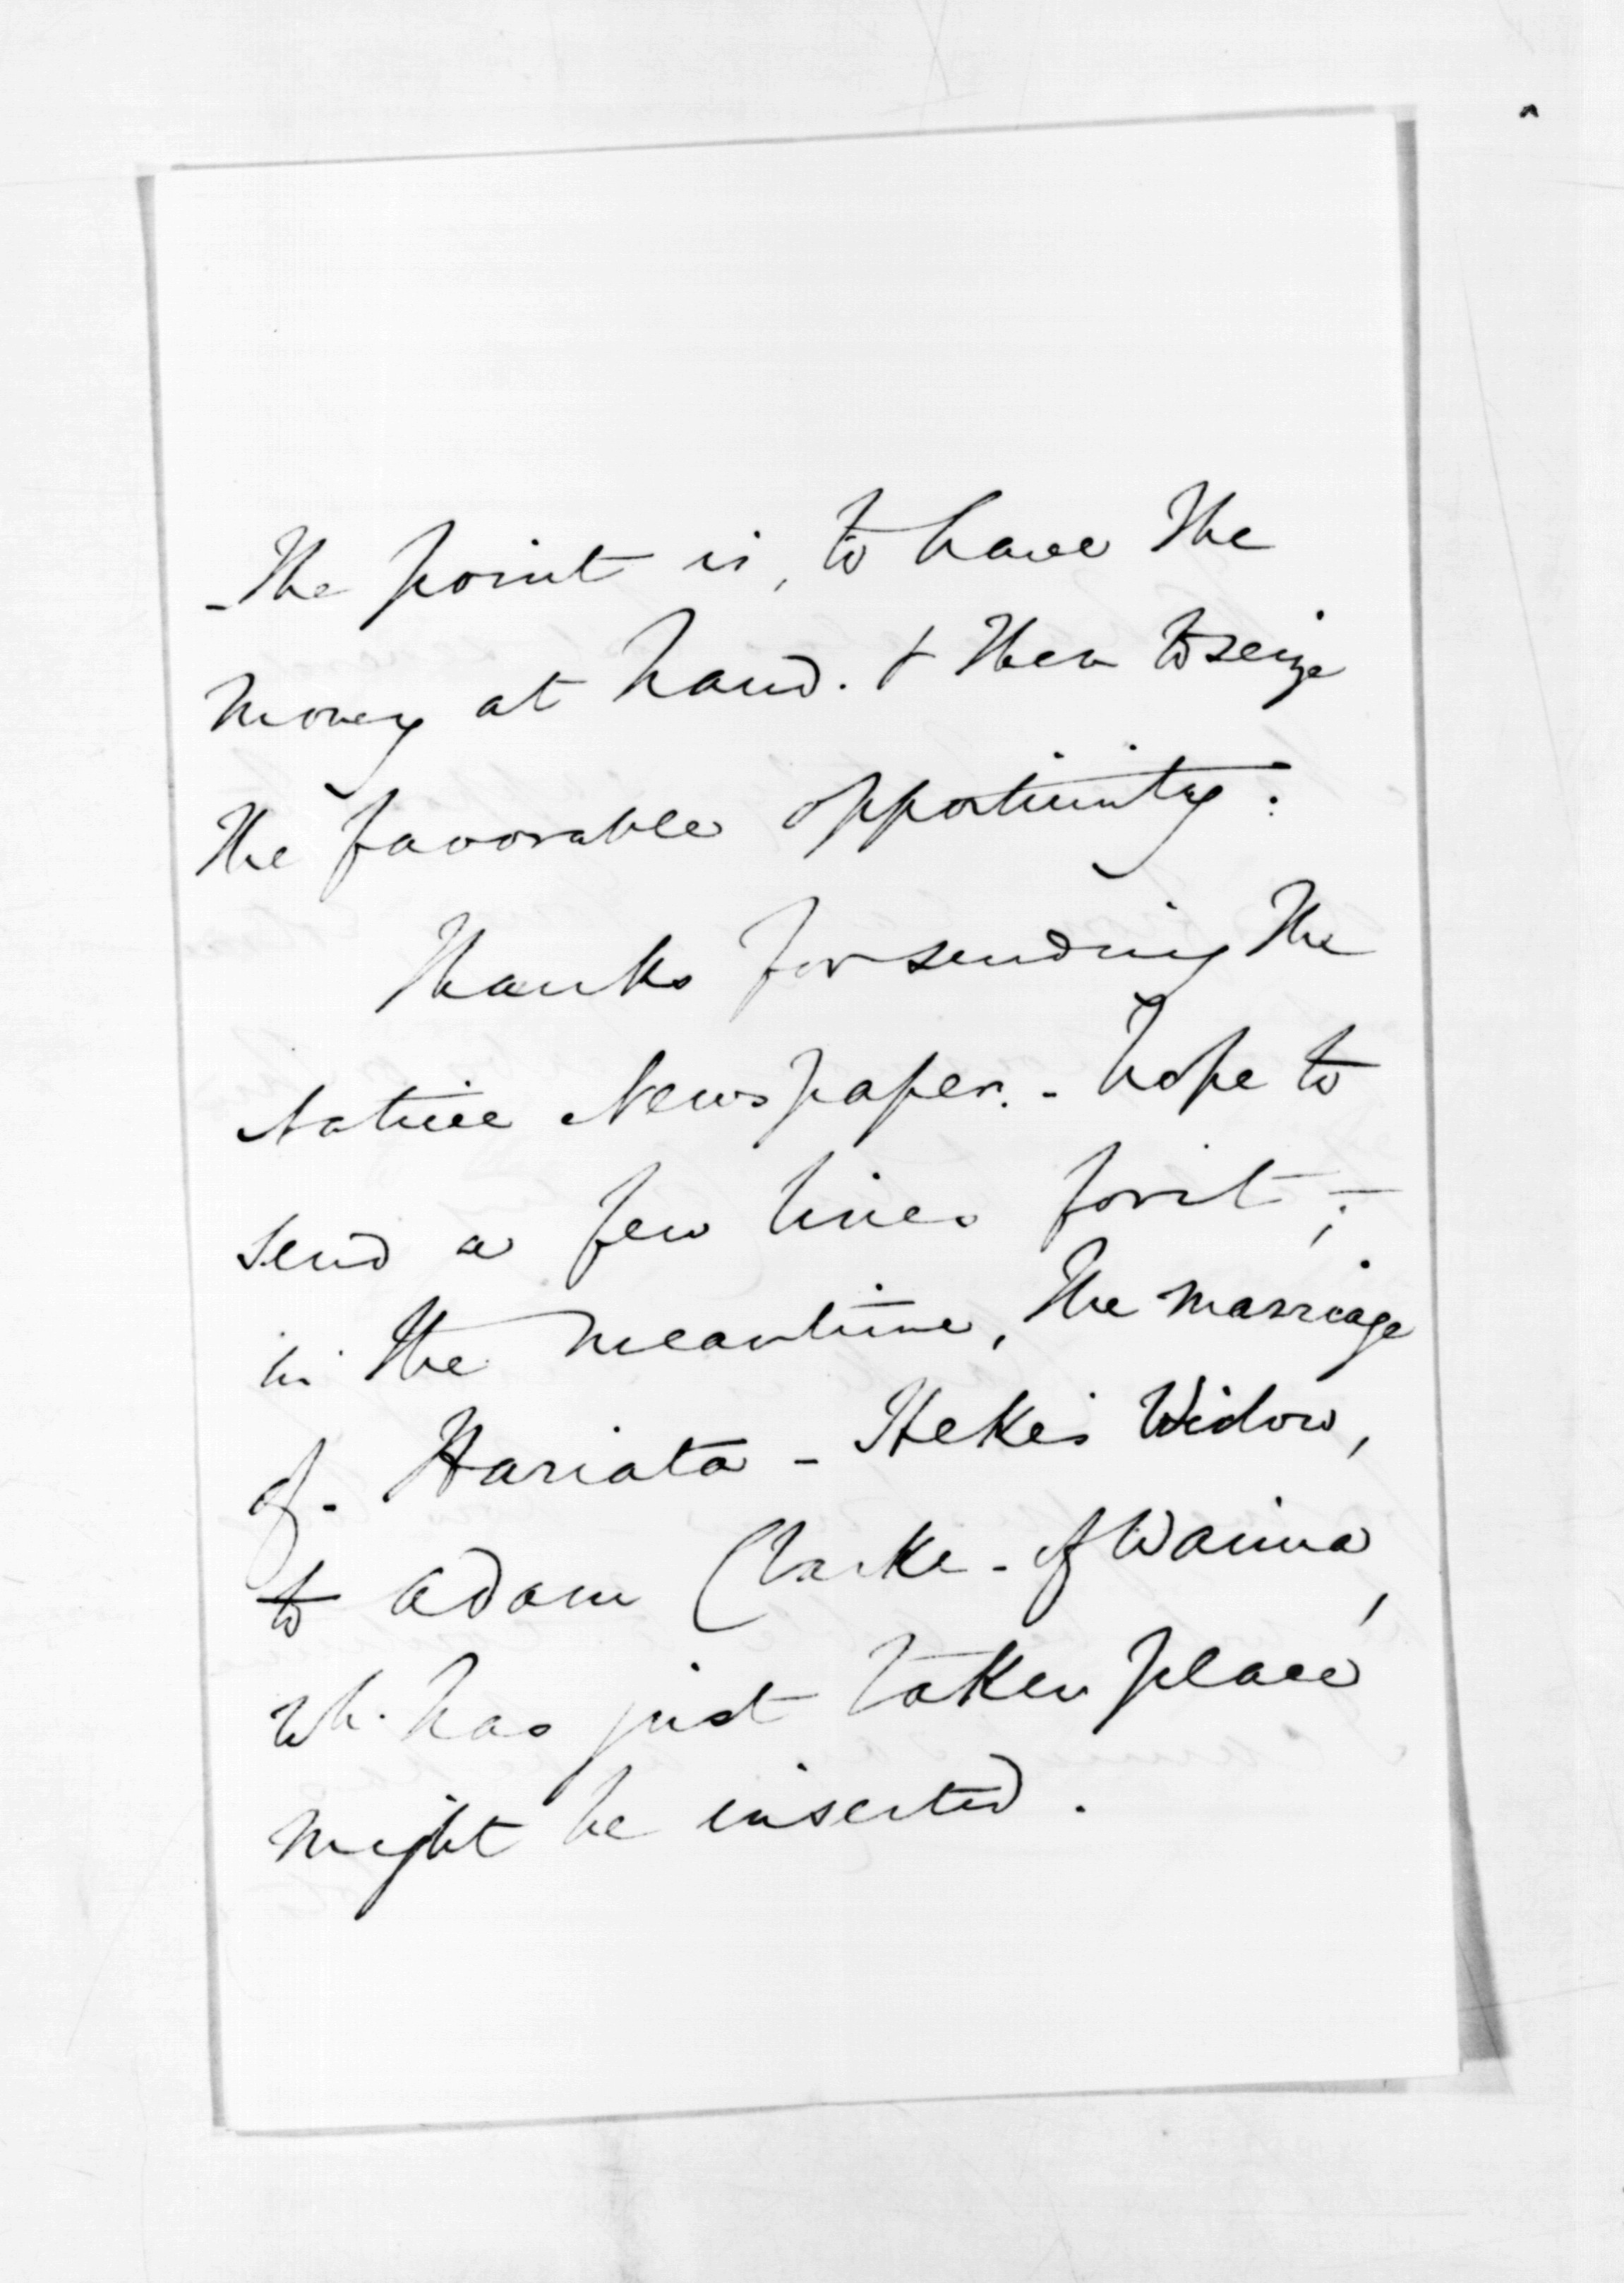 - The point is, to have the
money at hand. & then to seize
the favorable opportunity:
Thanks for sending the
Native Newspaper. - hope to
send a few lines for it; -
in the meantime, the marriage
of - Hariata - Heke's Widow,
to Adam Clarke - of Waima,
wh. has just taken place
might be inserted.